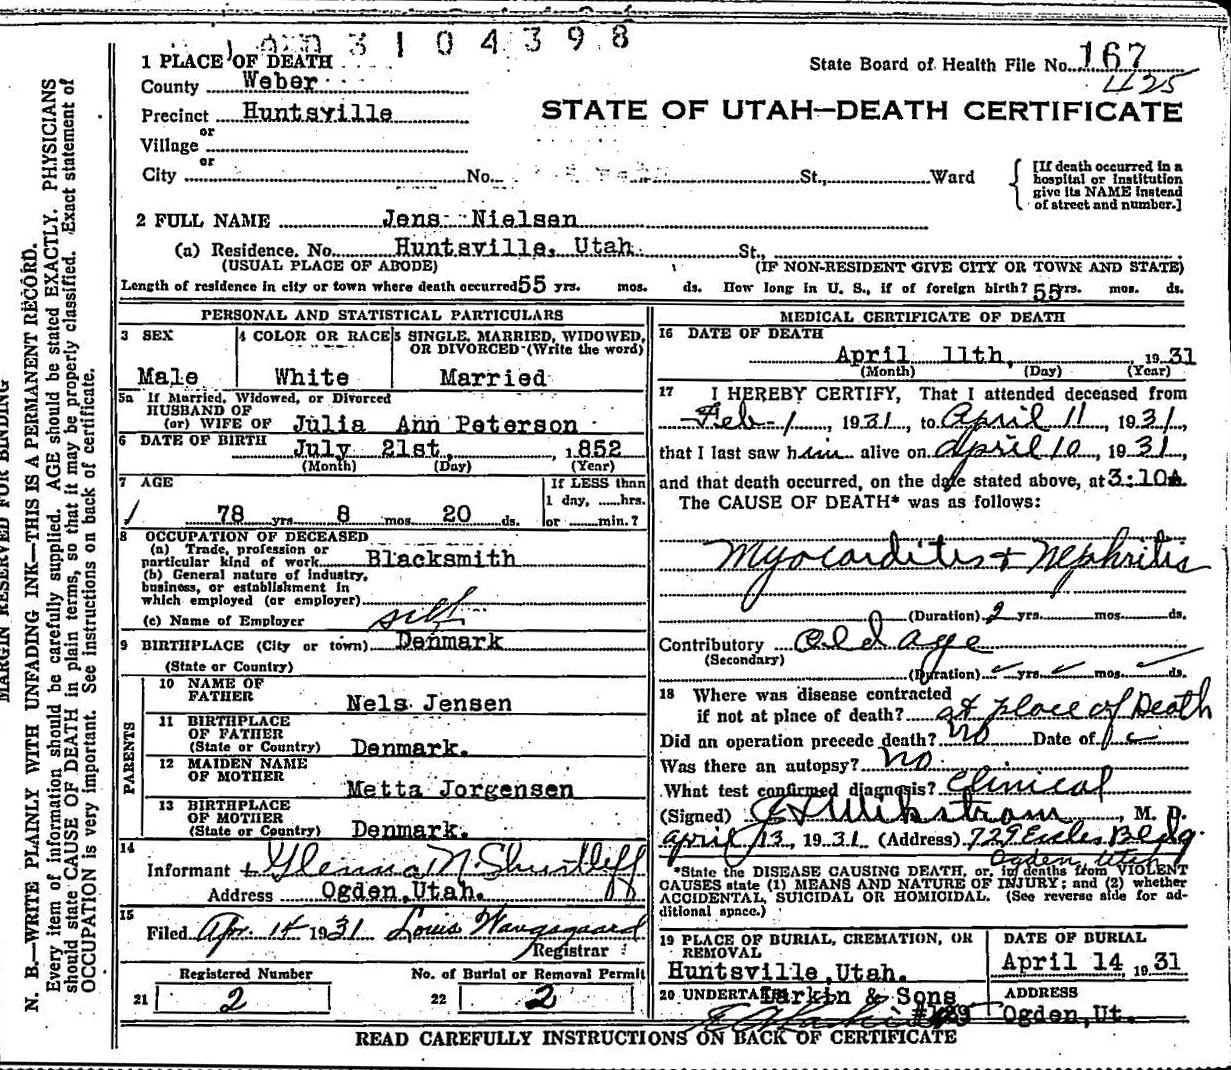 3104398
1 PLACE OF DEATH
State Board of Health File No. 167
1125
County Weber
Precinct Huntsville
STATE OF UTAH—DEATH CERTIFICATE
or
Village
or
City No. St., Ward
[If death occurred in a hospital or Institution give its NAME instead of street and number.]
2 FULL NAME Jens Nielsen
(a) Residence. No. Huntsville, Utah St.,
(USUAL PLACE OF ABODE) (IF NON-RESIDENT GIVE CITY OR TOWN AND STATE)
Length of residence in city or town where death occurred 55 yrs. mos. ds. How long in U. S., if of foreign birth? 55 yrs. mos. ds.
PERSONAL AND STATISTICAL PARTICULARS
3 SEX
Male
4 COLOR OR RACE
White
5 SINGLE, MARRIED, WIDOWED, OR DIVORCED (Write the word)
Married
5a If Married, Widowed, or Divorced
HUSBAND OF
(or) WIFE OF Julia Ann Peterson
6 DATE OF BIRTH July 21st, 1852
(Month) (Day) (Year)
7 AGE
78 yrs. 8 mos. 20 ds.
If LESS than
1 day, ......hrs.
or ......min.?
8 OCCUPATION OF DECEASED
(a) Trade, profession or
particular kind of work Blacksmith
(b) General nature of industry,
business, or establishment in
which employed (or employer)
(c) Name of Employer self
9 BIRTHPLACE (City or town) Denmark
(State or Country)
PARENTS
10 NAME OF
FATHER Nels Jensen
11 BIRTHPLACE
OF FATHER
(State or Country) Denmark.
12 MAIDEN NAME
OF MOTHER Metta Jorgensen
13 BIRTHPLACE
OF MOTHER
(State or Country) Denmark.
14
Informant Glenna N. Shurtleff
Address Ogden, Utah.
15
Filed Apr. 14 1931 Louis Wangsgaard
Registrar
Registered Number
21 2
No. of Burial or Removal Permit
22 2
MEDICAL CERTIFICATE OF DEATH
16 DATE OF DEATH
April 11th, 1931
(Month) (Day) (Year)
17 I HEREBY CERTIFY, That I attended deceased from
Feb-1, 1931, to April 11, 1931,
that I last saw him alive on April 10, 1931,
and that death occurred, on the date stated above, at 3:10A
The CAUSE OF DEATH* was as follows:
Myocarditis + Nephritis
(Duration) 2 yrs. mos. ds.
Contributory Old age
(Secondary)
(Duration) yrs. mos. ds.
18 Where was disease contracted
if not at place of death? at place of Death
Did an operation precede death? No Date of
Was there an autopsy? No
What test confirmed diagnosis? Clinical
(Signed) Wikstrom, M. D.
April 13, 1931 (Address) 729 Eccles Bldg.
Ogden, Utah
*State the DISEASE CAUSING DEATH, or, in deaths from VIOLENT
CAUSES state (1) MEANS AND NATURE OF INJURY; and (2) whether
ACCIDENTAL, SUICIDAL OR HOMICIDAL. (See reverse side for ad-
ditional space.)
19 PLACE OF BURIAL, CREMATION, OR
REMOVAL
Huntsville, Utah.
DATE OF BURIAL
April 14, 1931
20 UNDERTAKER Larkin & Sons
ADDRESS
Ogden, Ut.
READ CAREFULLY INSTRUCTIONS ON BACK OF CERTIFICATE
MARGIN RESERVED FOR BINDING
N. B.—WRITE PLAINLY WITH UNFADING INK—THIS IS A PERMANENT RECORD.
Every item of information should be carefully supplied. AGE should be stated EXACTLY. PHYSICIANS
should state CAUSE OF DEATH in plain terms, so that it may be properly classified. Exact statement of
OCCUPATION is very important. See instructions on back of certificate.